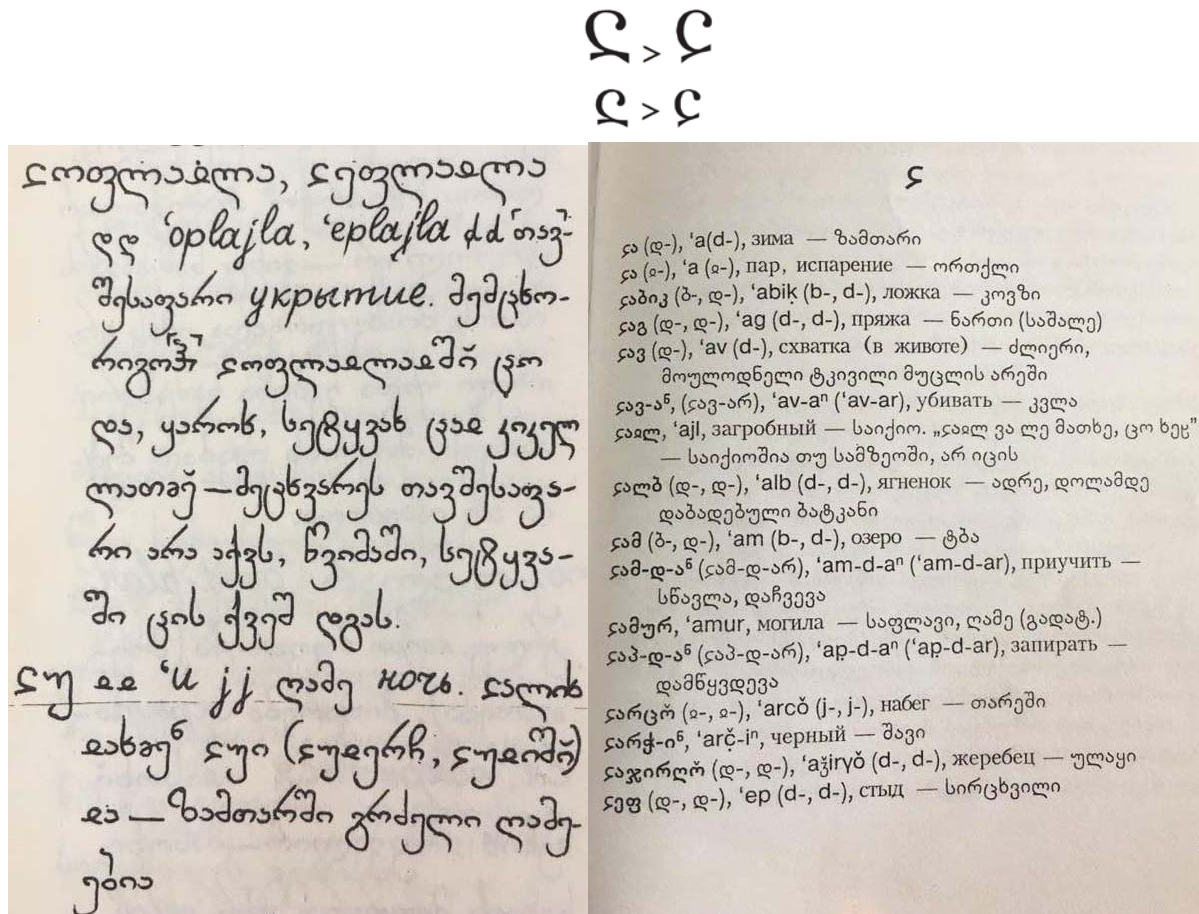 ჺ > ჺ
ჺ < ჺ
ჺოფლაჲლა, ჺეფლაჲლა
დდ ‘oplajla, ‘eplajla dd თავ-
შესაფარი укрытие. მემცხო-
რიგოჰ ჺოფლაჲლაჲშო̆ ცო
და, ყაროხ, სეტყვახ ცაჲ კიკელ
ლათმე̆ — მეცხვარეს თავშესაფა-
რი არა აქვს, წვიმაში, სეტყვა-
ში ცის ქვეშ დგას.
ჺუ ჲჲ ‘u jj ღამე ночь. ჺალიხ
ჲახხეჼ ჺუი (ჺუჲერჩ, ჺუჲიშო̆)
ჲა — ზამთარში გრძელი ღამე-
ებია
ჺ
ჺა (დ-), ‘a(d-), зима — ზამთარი
ჺა (ჲ-), ‘a (ჲ-), пар, испарение — ორთქლი
ჺაბიკ (ბ-, დ-), ‘abiḳ (b-, d-), ложка — კოვზი
ჺაგ (დ-, დ-), ‘ag (d-, d-), пряжа — ნართი (საშალე)
ჺავ (დ-), ‘av (d-), схватка (в животе) — ძლიერი,
მოულოდნელი ტკივილი მუცლის არეში
ჺავ-აჼ, (ჺავ-არ), ‘av-aⁿ (‘av-ar), убивать — კვლა
ჺაჲლ, ‘ajl, загробный — საიქიო. „ჺაჲლ ვა ლე მათხე, ცო ხეჸ”
— საიქიოშია თუ სამზეოში, არ იცის
ჺალბ (დ-, დ-), ‘alb (d-, d-), ягненок — ადრე, დოლამდე
დაბადებული ბატკანი
ჺამ (ბ-, დ-), ‘am (b-, d-), озеро — ტბა
ჺამ-დ-აჼ (ჺამ-დ-არ), ‘am-d-aⁿ (‘am-d-ar), приучить —
სწავლა, დაჩვევა
ჺამურ, ‘amur, могила — საფლავი, ღამე (გადატ.)
ჺაპ-დ-აჼ (ჺაპ-დ-არ), ‘ap̣-d-aⁿ (‘ap̣-d-ar), запирать —
დამწყვდევა
ჺარცო̆ (ჲ-, ჲ-), ‘arcŏ (j-, j-), набег — თარეში
ჺარჭ-იჼ, ‘arč̣-iⁿ, черный — შავი
ჺაჯირღო̆ (დ-, დ-), ‘aǯirγŏ (d-, d-), жеребец — ულაყი
ჺეფ (დ-, დ-), ‘ep (d-, d-), стыд — სირცხვილი